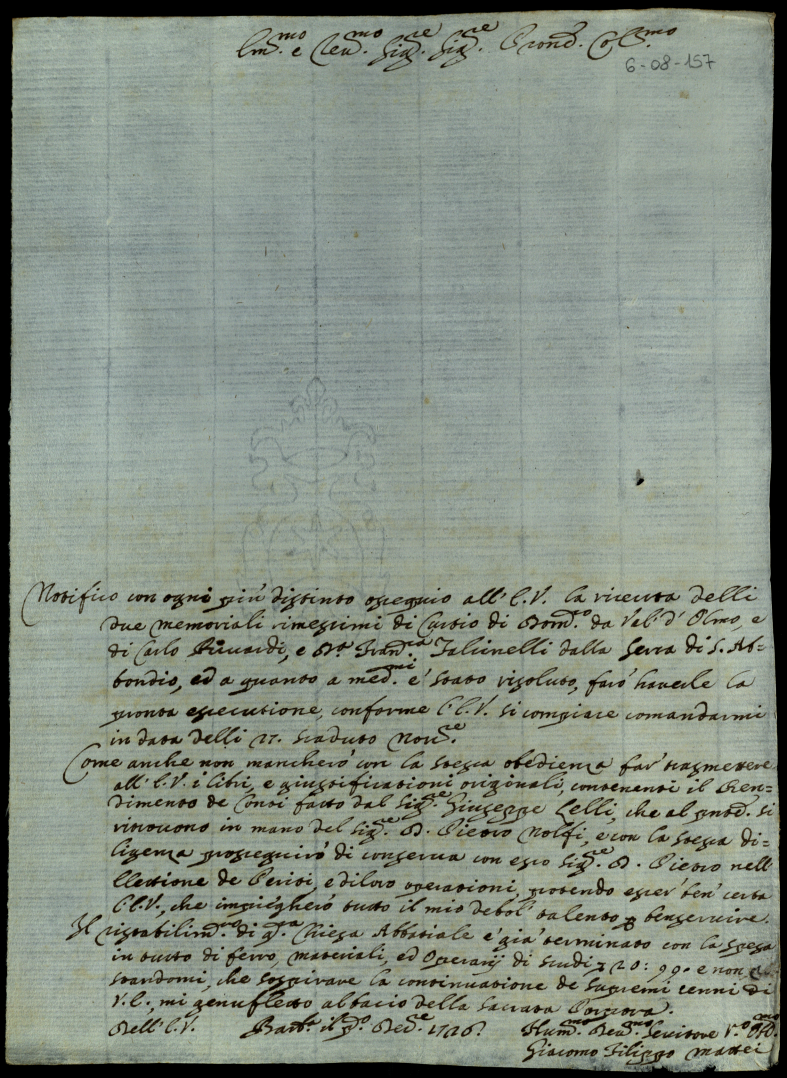 Em.mo e Reu.mo Sig.re Sig.re Pron.e Col.mo
6-08-157
Notifico con ogni più distinto ossequio all' E.V. la riceuta delli
due memoriali rimessimi di Curtio di Dom.co da Val d' Olmo, e
di Carlo Riccardi, e D.a Fran.ca dalla Serra di S. Ab=
bondio, ed a quanto a med.mi è stato risoluto, farò hauerle la
pronta essecutione, conforme l' E.V. si compiace comandarmi
in data delli 27. scaduto Nou.re
Come anche non mancherò con la stessa obedienza far trasmettere
all' E.V. i libri, e giustificationi originali, contenenti il Ren=
dimento de Conti fatto dal Sig.re Giuseppe Lelli, che al
ritrouono in mano del Sig.re D. Pietro Nolfi, e con la stessa di=
ligenza proseguirò di conserua con esso Sig.re D. Pietro nell'
Ellettione de Periti, e di loro operationi, potendo esser ben certa
l' E.V., che impiegherò tutto il mio debol talento p benseruire.
Il ristabilim.to di q.ta Chiesa Abbatiale è già terminato con la spesa
in tutto di ferro, materiali, ed Operarij di scudi 720: 99. e non re=
standomi, che sospirare la continuatione de supremi cenni di
V.E., mi genufletto al bacio della Sacrata Porpora.
Dell' E.V. il p.o Dec.re 1726.
Hum.mo Deu.mo Seruitore
Giacomo Filippo Mattei